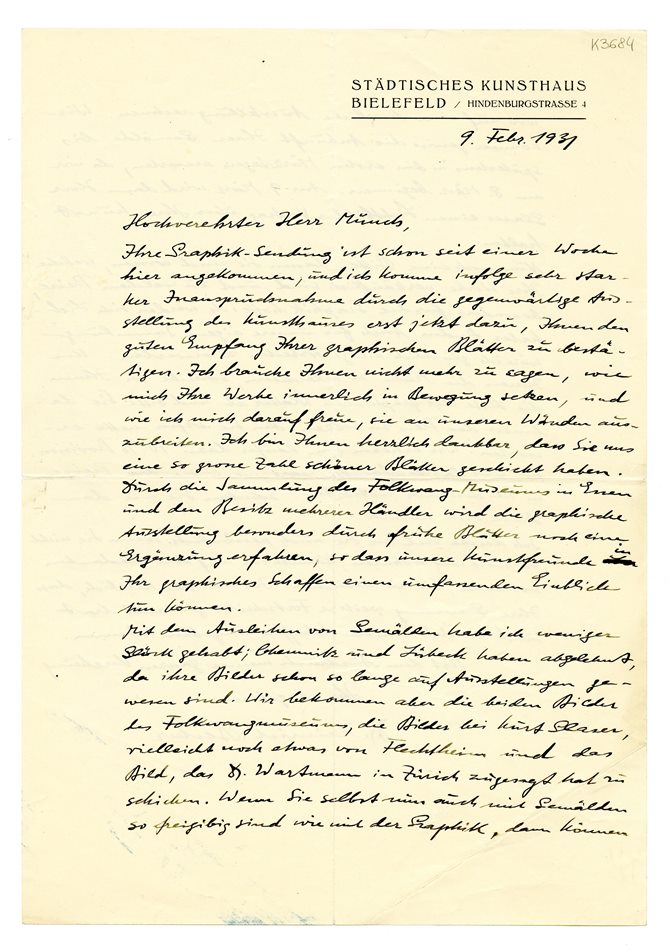 K3684
STÄDTISCHES KUNSTHAUS
BIELEFELD / HINDENBURGSTRASSE 4
9. Febr. 1931
Hochverehrter Herr Munch,
Ihre Graphik-Sendung ist schon seit einer Woche
hier angekommen, und ich komme infolge sehr star-
ker Inanspruchnahme durch die gegenwärtige Aus-
stellung des Kunsthauses erst jetzt dazu, Ihnen den
guten Empfang Ihrer graphischen Blätter zu bestä-
tigen. Ich brauche Ihnen nicht mehr zu sagen, wie
mich Ihre Werke innerlich in Bewegung setzen, und
wie ich mich darauf freue, sie an unseren Wänden aus-
zubreiten. Ich bin Ihnen herzlich dankbar, dass Sie uns
eine so grosse Zahl schöner Blätter geschickt haben.
Durch die Sammlung des Folkwang-Museums in Essen
und den Besitz mehrerer Händler wird die graphische
Ausstellung besonders durch frühe Blätter noch eine
Ergänzung erfahren, so dass unsere Kunstfreunde in
Ihr graphisches Schaffen einen umfassenden Einblick
tun können.
Mit dem Ausleihen von Gemälden habe ich weniger
Glück gehabt; Chemnitz und Lübeck haben abgelehnt,
da ihre Bilder schon so lange auf Ausstellungen ge-
wesen sind. Wir bekommen aber die beiden Bilder
des Folkwangmuseums, die Bilder bei Kurt Glaser,
vielleicht noch etwas von Flechtheim und das
Bild, das Dr. Wartmann in Zürich zugesagt hat zu
schicken. Wenn Sie selbst nun auch mit Gemälden
so freigibig sind wie mit der Graphik, dann können